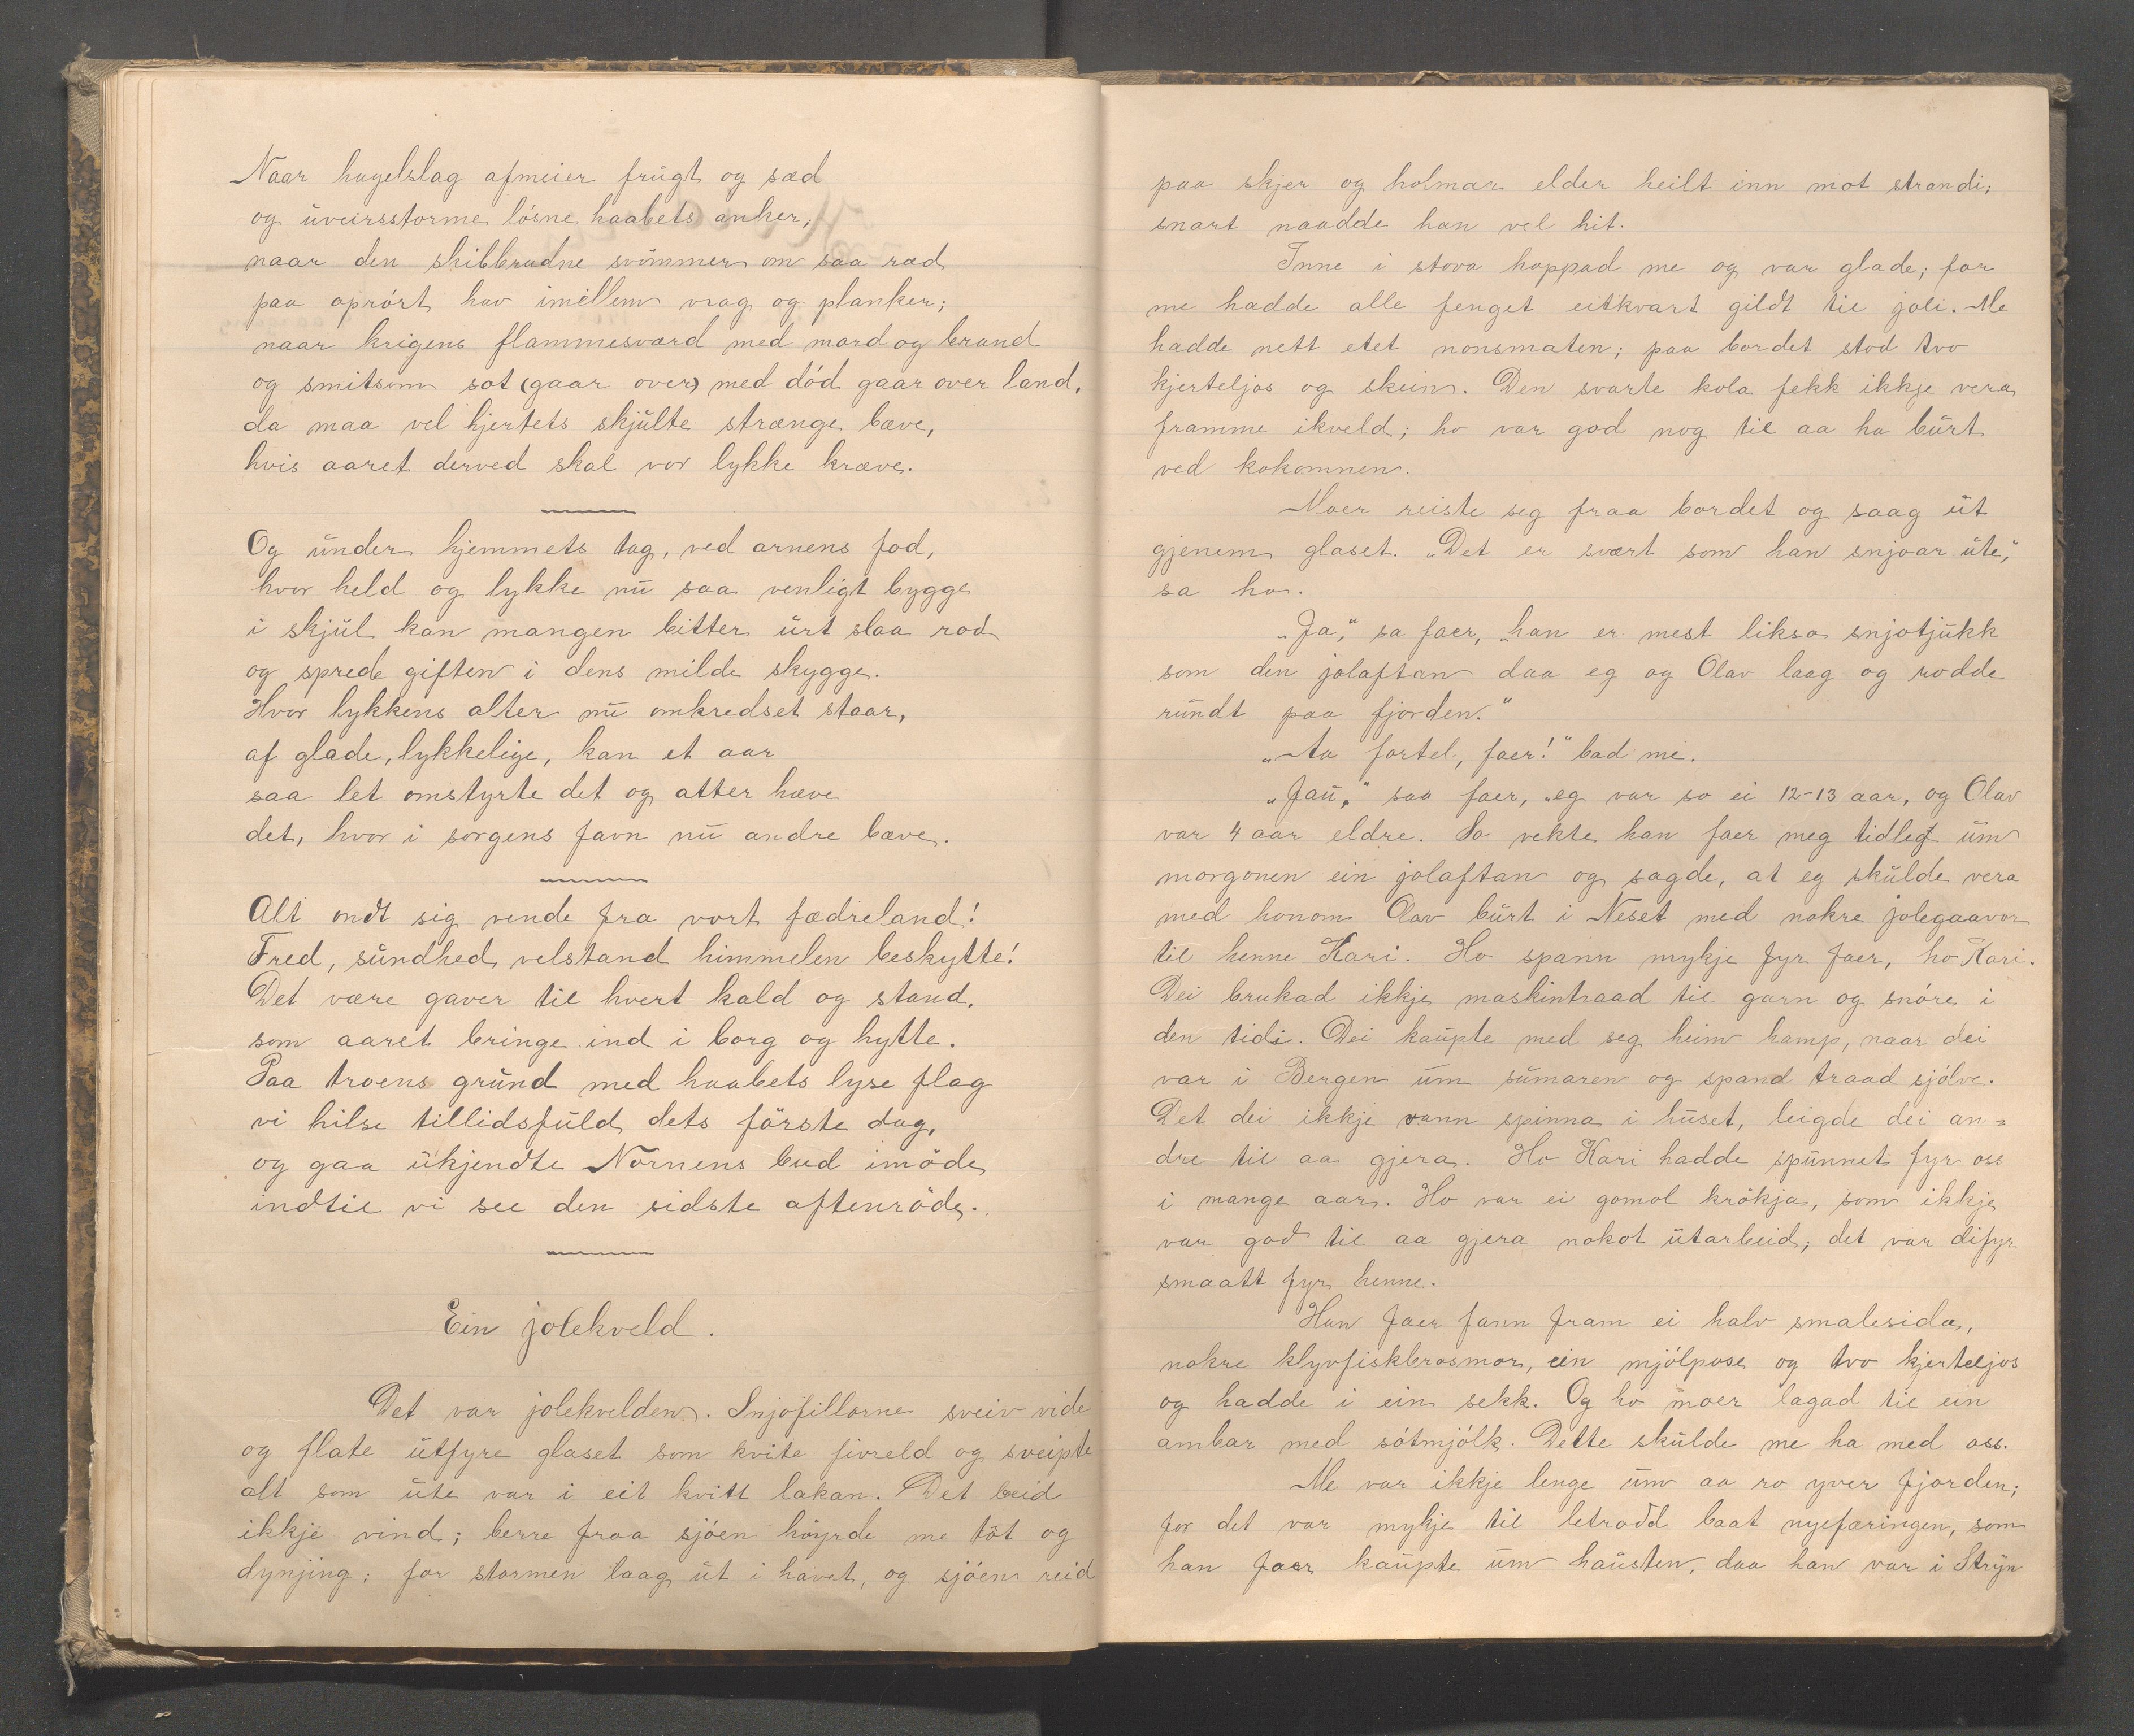 Naar hagelslag afmeier frugt og sæd
og uveirsstorme løsne haabets anker,
naar den skibbrudne svømmer om saa ræd
paa oprørt hav imellem vrag og planker;
naar krigens flammesværd med mord og brand
og smitsom sot (gaar over) med død gaar over land,
da maa vel hjertets skjulte strænge bæve,
hvis aaret derved skal vor lykke kræve.
Og under hjemmets tag, ved arnens fod,
hvor held og lykke nu saa venligt bygge
i skjul kan mangen bitter urt slaa rod
og sprede giften i dens milde skygge.
Hvor lykkens alter nu omkredset staar,
af glade, lykkelige, kan et aar
saa let omstyrte det og atter hæve
det, hvor i sorgens favn nu andre bæve.
Alt ondt sig vende fra vort fædreland!
Fred, sundhed, velstand himmelen beskytte!
Det være gaver til hvert kald og stand,
som aaret bringe ind i borg og hytte.
Paa troens grund med haabets lyse flag
vi hilse tillidsfuld dets første dag,
og gaa ukjendte Nornens bud imøde
indtil vi see den sidste aftenrøde.
Ein jolekveld.
Det var jolekvelden. Snjofillorne sveiv vide
og flate utfyre glaset som kvite fivreld og sveipte
alt som ute var i eit kvitt lakan. Det beid
ikkje vind; berre fraa sjøen høyrde me tót og
dynjing; for stormen laag ut i havet, og sjøen reid
paa skjer og holmar elder heilt inn mot strandi;
snart naadde han vel hit.
Inne i stova hoppad me og var glade; for
me hadde alle fenget eitkvart gildt til joli. Me
hadde nett etet nonsmaten; paa bordet stod tvo
kjerteljos og skein. Den svarte kola fekk ikkje vera
framme ikveld; ho var god nog til aa ha burt
ved kokomnen.
Moer reiste seg fraa bordet og saag ut
gjenem glaset. "Det er svært som han snjoar ute,"
sa ho.
"Ja," sa faer, "han er mest likso snjotjukk
som den jolaftan daa eg og Olav laag og rodde
rundt paa fjorden."
"Aa fortel, faer!" bad me.
"Jau," saa faer, "eg var so ei 12-13 aar, og Olav
var 4 aar eldre. So vekte han faer meg tidleg um
morgonen ein jolaftan og sagde, at eg skulde vera
med honom Olav burt i Neset med nokre jolegaavor
til henne Kari. Ho spann mykje fyr faer, ho Kari.
Dei brukad ikkje maskintraad til garn og snøre i
den tidi. Dei kaupte med seg heim hamp, naar dei
var i Bergen um sumaren og spand traad sjølve.
Det dei ikkje vann spinna i huset, leigde dei an=
dre til aa gjera. Ho Kari hadde spunnet fyr oss
i mange aar. Ho var ei gomol krøkja, som ikkje
var god til aa gjera nokot utarbeid; det var difyr
smaatt fyr henne.
Han faer fann fram ei halv smalesida,
nokre klyvfiskbrosmor, ein mjølpose og tvo kjerteljos
og hadde i ein sekk. Og ho moer lagad til ein
ambar med søtmjølk. Dette skulde me ha med oss.
Me var ikkje lenge um aa ro yver fjorden;
for det var mykje til letrodd baat nyefæringen, som
han faer kaupte um hausten, daa han var i Stryn